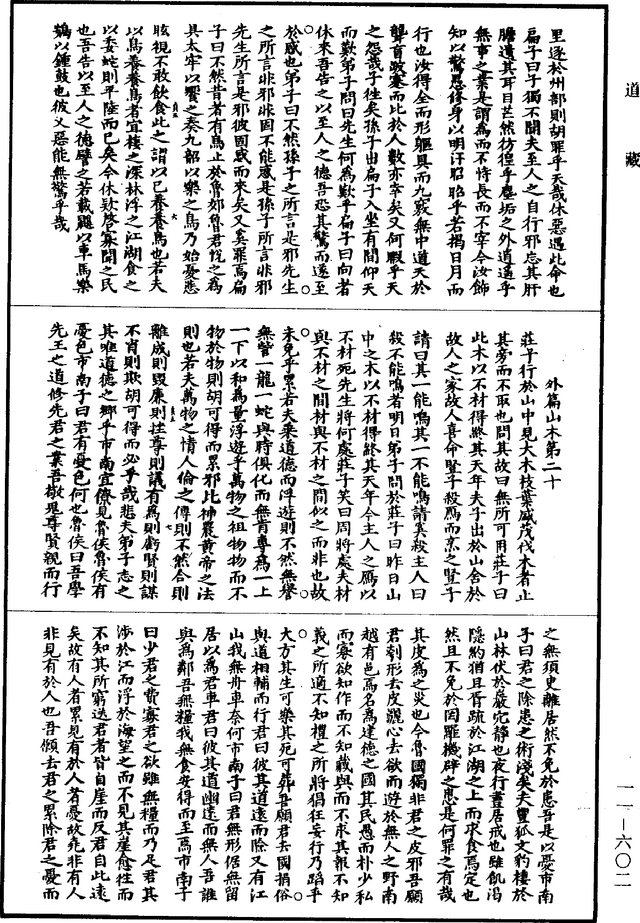 道藏
里逐於州部則胡罪乎天哉休惡遇此命也
扁子曰子獨不聞夫至人之自行邪忘其肝
膽遺其耳目芒然彷徨乎塵垢之外逍遥乎
無事之業是謂爲而不恃長而不宰今汝飾
知以驚愚修身以明汙昭昭乎若揭日月而
行也汝得全而形軀具而九竅無中道夭於
聾盲跛蹇而比於人數亦幸矣又何暇乎天
之怨哉子徃矣孫子出扁子入坐有間仰天
而歎弟子問曰先生何爲歎乎扁子曰向者
休來吾告之以至人之德吾恐其驚而遂至
於惑也弟子曰不然孫子之所言是邪先生
之所言非邪非固不能惑是孫子所言非邪
先生所言是邪彼固惑而來矣又奚罪焉扁
子曰不然昔者有鳥止於魯郊魯君悅之爲
具太牢以饗之奏九韶以樂之鳥乃始憂悲
眩視不敢飲食此之謂以己養養鳥也若夫
以鳥養養鳥者宜棲之深林浮之江湖食之
以委蛇則平陸而已矣今休款啓寡聞之民
也吾告以至人之德譬之若載鼷以車馬樂
鴳以鍾鼓也彼又惡能無驚乎哉
外篇山木第二十
莊子行於山中見大木枝葉盛茂伐木者止
其旁而不取也問其故曰無所可用莊子曰
此木以不材得終其天年夫子出於山舍於
故人之家故人喜命豎子殺鴈而烹之豎子
請曰其一能鳴其一不能鳴請奚殺主人曰
殺不能鳴者明日弟子問於莊子曰昨日山
中之木以不材得終其天年今主人之鴈以
不材死先生將何處莊子笑曰周將處夫材
與不材之間材與不材之間似之而非也故
未免乎累若夫乘道德而浮遊則不然無譽
無訾一龍一蛇與時俱化而無肯專爲一上
一下以和爲量浮遊乎萬物之祖物物而不
物於物則胡可得而累邪此神農黃帝之法
則也若夫萬物之情人倫之傳則不然合則
離成則毀廉則挫尊則議有爲則虧賢則謀
不肖則欺胡可得而必乎哉悲夫弟子志之
其唯道德之鄉乎市南宜僚見魯侯魯侯有
憂色市南子曰君有憂色何也魯侯曰吾學
先王之道修先君之業吾敬鬼尊賢親而行
之無須臾離居然不免於患吾是以憂市南
子曰君之除患之術淺矣夫豐狐文豹棲於
山林伏於巖穴靜也夜行晝居戒也雖飢渴
隱約猶且胥疏於江湖之上而求食焉定也
然且不免於罔羅機辟之患是何罪之有哉
其皮爲之災也今魯國獨非君之皮邪吾願
君刳形去皮灑心去欲而遊於無人之野南
越有邑焉名爲建德之國其民愚而朴少私
而寡欲知作而不知藏與而不求其報不知
義之所適不知禮之所將猖狂妄行乃蹈乎
大方其生可樂其死可葬吾願君去國捐俗
與道相輔而行君曰彼其道遠而險又有江
山我無舟車奈何市南子曰君無形倨無留
居以爲君車君曰彼其道幽遠而無人吾誰
與爲鄰吾無糧我無食安得而至焉市南子
曰少君之費寡君之欲雖無糧而乃足君其
涉於江而浮於海望之而不見其崖愈徃而
不知其所窮送君者皆自崖而反君自此遠
矣故有人者累見有於人者憂故堯非有人
非見有於人也吾願去君之累除君之憂而
一一—六〇二